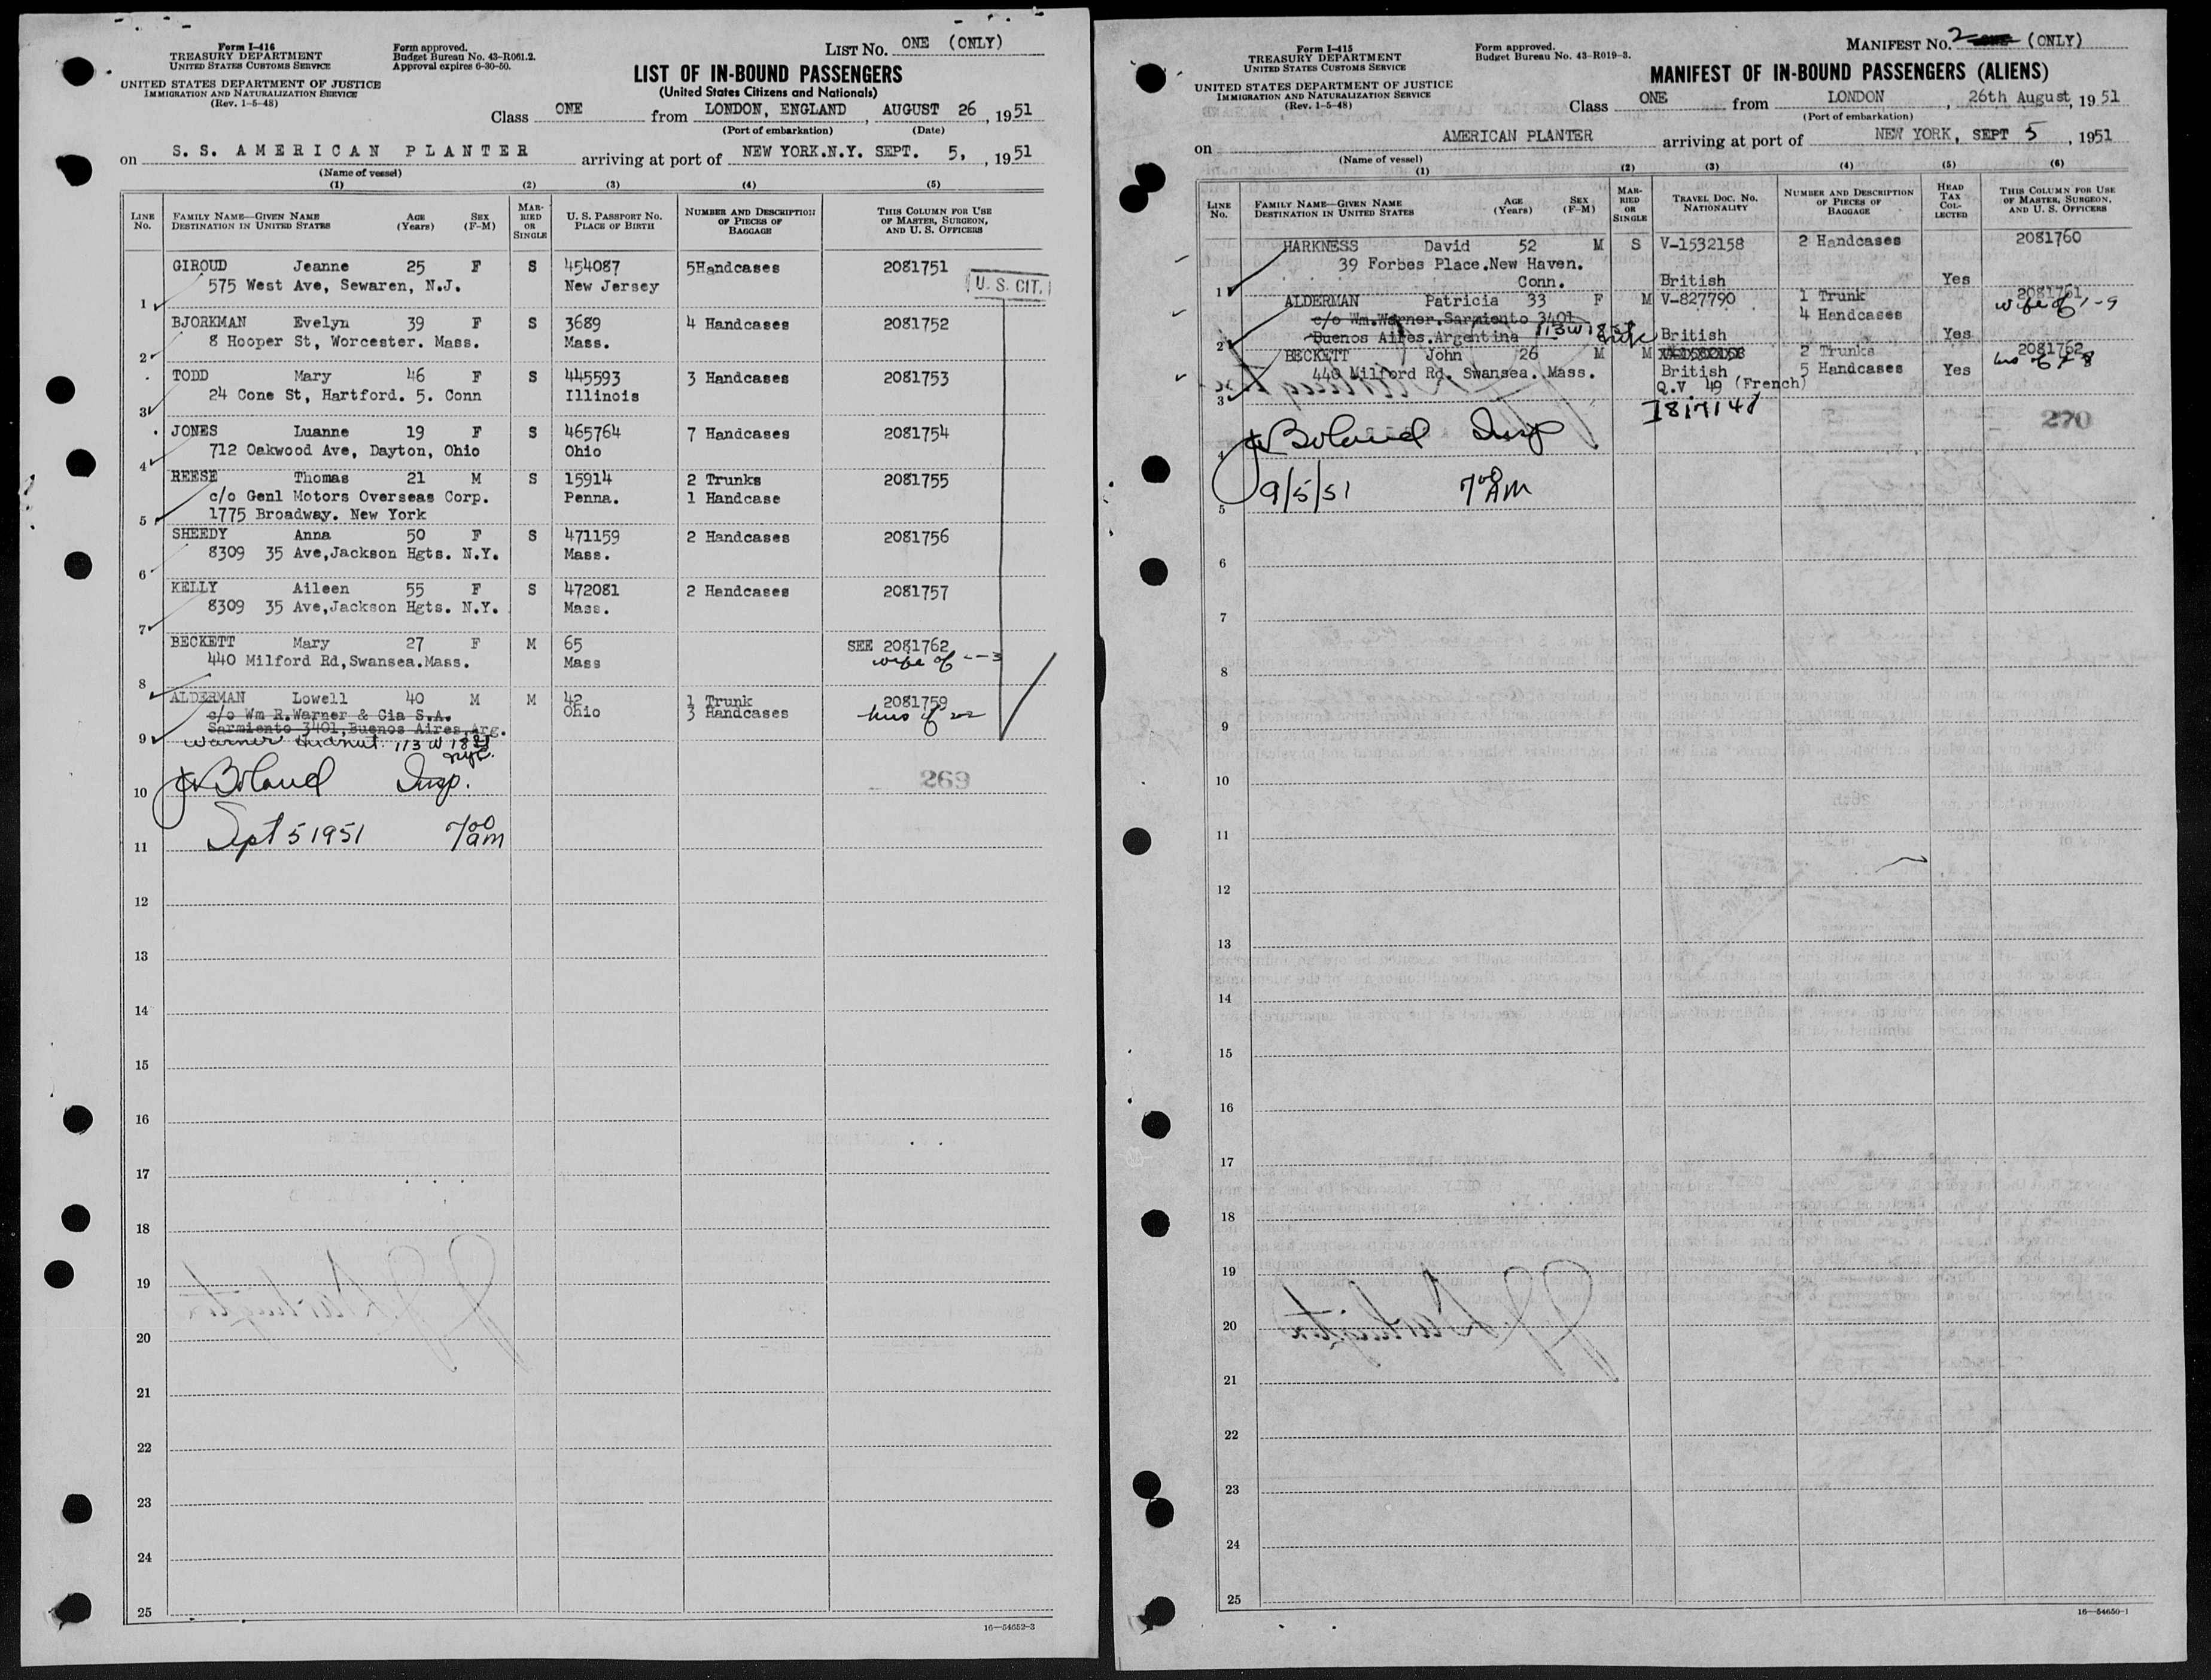 Form I-416
TREASURY DEPARTMENT
UNITED STATES CUSTOMS SERVICE
UNITED STATES DEPARTMENT OF JUSTICE
IMMIGRATION AND NATURALIZATION SERVICE
(Rev. 1-5-48)
Form approved.
Budget Bureau No. 43-R061.2.
Approval expires 6-30-50.
LIST NO. ONE (ONLY)
LIST OF IN-BOUND PASSENGERS
(United States Citizens and Nationals)
Class ONE from LONDON, ENGLAND, AUGUST 26, 1951
(Port of embarkation) (Date)
on S.S. AMERICAN PLANTER arriving at port of NEW YORK.N.Y. SEPT. 5, , 1951
(Name of vessel)
(1) (2) (3) (4) (5)
LINE No. FAMILY NAME—GIVEN NAME DESTINATION IN UNITED STATES AGE (Years) SEX (F-M) MARRIED OR SINGLE U. S. PASSPORT NO. PLACE OF BIRTH NUMBER AND DESCRIPTION OF PIECES OF BAGGAGE THIS COLUMN FOR USE OF MASTER, SURGEON, AND U. S. OFFICERS
GIROUD Jeanne 25 F S 454087 5Handcases 2081751
575 West Ave, Sewaren, N.J. New Jersey U. S. CIT.
1
BJORKMAN Evelyn 39 F S 3689 4 Handcases 2081752
8 Hooper St, Worcester. Mass. Mass.
2
TODD Mary 46 F S 445593 3 Handcases 2081753
24 Cone St, Hartford. 5. Conn Illinois
3
JONES Luanne 19 F S 465764 7 Handcases 2081754
712 Oakwood Ave, Dayton, Ohio Ohio
4
REESE Thomas 21 M S 15914 2 Trunks 2081755
c/o Genl Motors Overseas Corp. Penna. 1 Handcase
1775 Broadway. New York
5
SHEEDY Anna 50 F S 471159 2 Handcases 2081756
8309 35 Ave,Jackson Hgts. N.Y. Mass.
6
KELLY Aileen 55 F S 472081 2 Handcases 2081757
8309 35 Ave,Jackson Hgts. N.Y. Mass.
7
BECKETT Mary 27 F M 65 SEE 2081762
440 Milford Rd,Swansea.Mass. Mass wife of --3
8
ALDERMAN Lowell 40 M M 42 1 Trunk 2081759
c/o Wm R.Warner & Cia S.A. Ohio 3 Handcases hus of
Sarmiento 3401,Buenos Aires,Arg.
9 Warner Hudnut. 113 W 18 St
NYC.
Boland Insp. 269
10
Sept 5 1951 7 00 am
11
12
13
14
15
16
17
18
19
20
21
22
23
24
25
16—54652-3
Form I-415
TREASURY DEPARTMENT
UNITED STATES CUSTOMS SERVICE
UNITED STATES DEPARTMENT OF JUSTICE
IMMIGRATION AND NATURALIZATION SERVICE
(Rev. 1-5-48)
Form approved.
Budget Bureau No. 43-R019-3.
MANIFEST NO. 2 ONE (ONLY)
MANIFEST OF IN-BOUND PASSENGERS (ALIENS)
Class ONE from LONDON, 26th August, 1951
(Port of embarkation)
on AMERICAN PLANTER arriving at port of NEW YORK, SEPT 5, 1951
(Name of vessel)
(1) (2) (3) (4) (5) (6)
LINE No. FAMILY NAME—GIVEN NAME DESTINATION IN UNITED STATES AGE (Years) SEX (F-M) MARRIED OR SINGLE TRAVEL DOC. NO. NATIONALITY NUMBER AND DESCRIPTION OF PIECES OF BAGGAGE HEAD TAX COLLECTED THIS COLUMN FOR USE OF MASTER, SURGEON, AND U. S. OFFICERS
HARKNESS David 52 M S V-1532158 2 Handcases 2081760
39 Forbes Place.New Haven.
Conn. British Yes
1
ALDERMAN Patricia 33 F M V-827790 1 Trunk 2081761
c/o Wm.Warner.Sarmiento 3401 4 Handcases wife of 1-9
Buenos Aires.Argentina 113 W 18 St British Yes
2
BECKETT John 26 M M 2 Trunks 2081762
440 Milford Rd. Swansea. Mass. British 5 Handcases Yes hus of 8
Q.V 49 (French)
3
I817141
Boland Insp 270
4
9/5/51 7 00 AM
5
6
7
8
9
10
11
12
13
14
15
16
17
18
19
20
21
22
23
24
25
16—54650-1